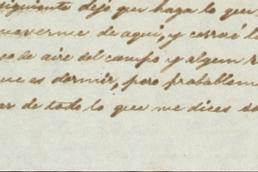 siguiente dejó que haga lo que
moverme de aquí, y cerré l
de aire del campo y algun r
ue es dormir, pero probablem
ar de todo lo que me dices so